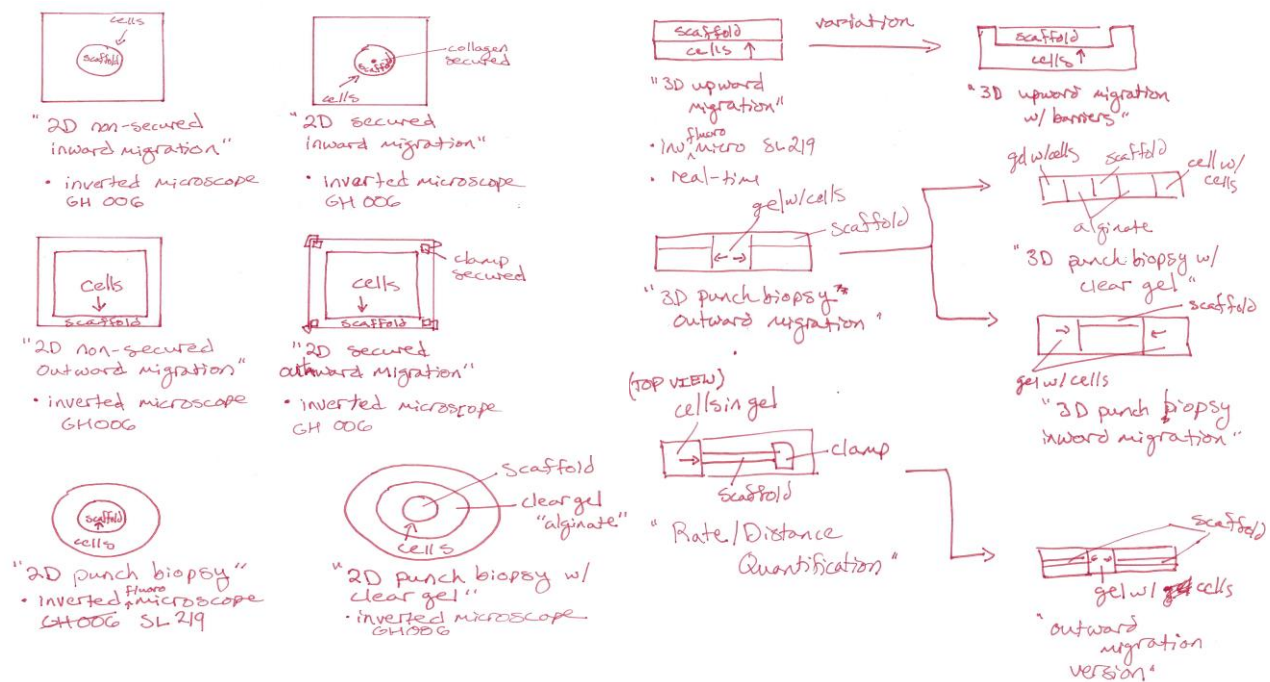 cells
scaffold
"2D non-secured
inward migration"
• inverted microscope
GH 006
collagen
secured
scaffold
cells
"2D secured
inward migration"
• inverted microscope
GH 006
cells
scaffold
"2D non-secured
outward migration"
• inverted microscope
GH006
clamp
secured
cells
scaffold
"2D secured
outward migration"
• inverted microscope
GH 006
scaffold
cells
"2D punch biopsy"
• inverted fluoro microscope
GH006 SL 219
scaffold
clear gel
"alginate"
cells
"2D punch biopsy w/
clear gel"
• inverted microscope
GH006
scaffold
cells
"3D upward
migration"
• inv fluoro micro SL219
• real-time
variation
scaffold
cells
"3D upward migration
w/ barriers"
gel w/cells
scaffold
"3D punch biopsy **
outward migration"
gel w/cells
scaffold
cell w/
cells
alginate
"3D punch biopsy w/
clear gel"
scaffold
gel w/ cells
"3D punch biopsy
inward migration"
(TOP VIEW)
cells in gel
clamp
scaffold
"Rate/Distance
Quantification"
scaffold
gel w/ cells
"outward
migration
version"